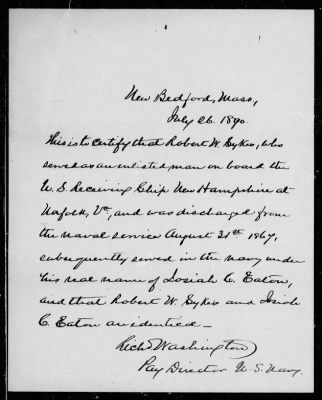 New Bedford, Mass,
July 26. 1890.
This is to certify that Robert W. Sykes, who
served as an enlisted man on board the
U. S. Receiving Ship New Hampshire at
Norfolk, Va, and was discharged from
the naval service August 31st 1867,
subsequently served in the navy under
his real name of Josiah C. Eaton,
and that Robert W. Sykes and Josiah
C. Eaton are identical—
Richd Washington
Pay Director U. S. Navy.